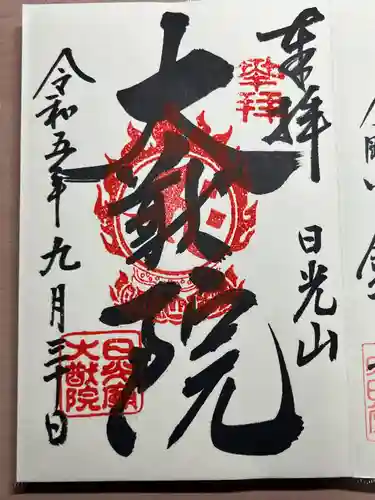 奉拝
日光山
大猷院
令和五年九月三十日
奉拝
日光廟
大猷院